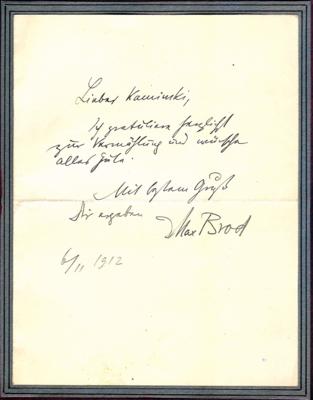 Lieber Kaminski,
ich gratuliere herzlich
zur Vermählung und wünsche
alles Gute.
Mit bestem Gruß
Ihr ergeben
Max Brod
6/II 1912